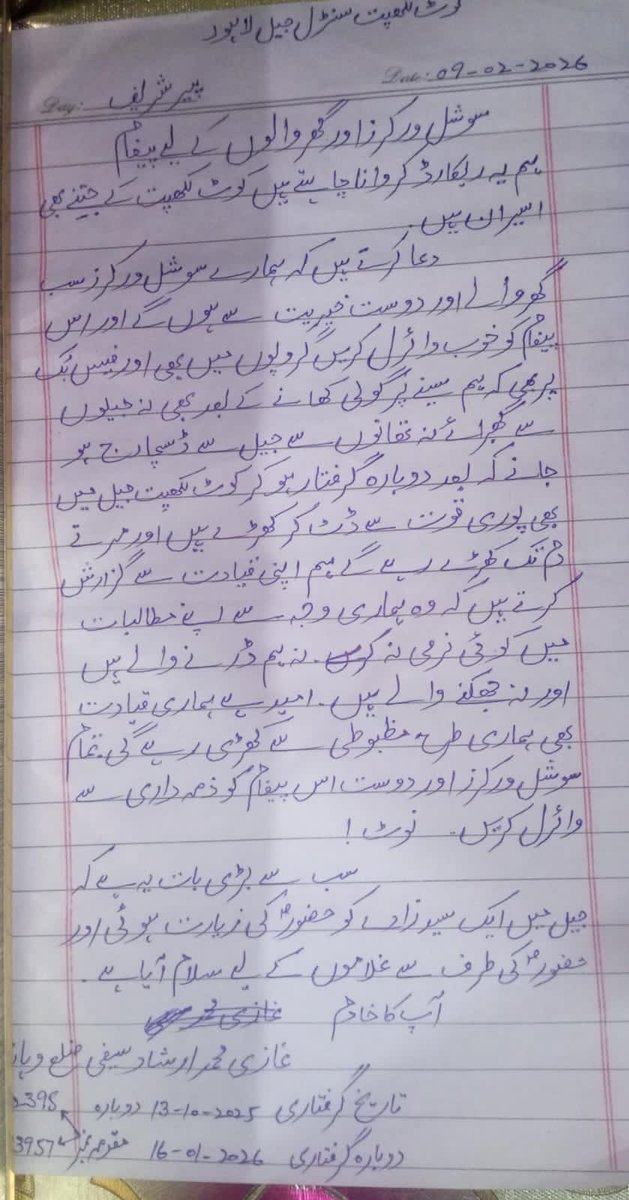 کوٹ لکھپت سنٹرل جیل لاہور
Day: پیر شریف Date: 09-02-2026
سوشل ورکرز اور گھر والوں کے لیے پیغام
ہم یہ ریکارڈ کروانا چاہتے ہیں کوٹ لکھپت کے جتنے بھی
اسیران ہیں۔
دعا کرتے ہیں کہ ہمارے سوشل ورکرز سب
گھر والے اور دوست خیریت سے ہوں گے اور اس
پیغام کو خوب وائرل کریں گروپوں میں بھی اور فیس بک
پر بھی کہ ہم سینے پر گولی کھانے کے بعد بھی نہ جیلوں
سے گھبرائے نہ تھانوں سے جیل سے ڈسچارج ہو
جانے کہ بعد دوبارہ گرفتار ہو کر کوٹ لکھپت جیل میں
بھی پوری قوت سے ڈٹ کر کھڑے ہیں اور مرتے
دم تک کھڑے رہے گے ہم اپنی قیادت سے گزارش
کرتے ہیں کہ وہ ہماری وجہ سے اپنے مطالبات
میں کوئی نرمی نہ کریں۔ نہ ہم ڈرنے والے ہیں
اور نہ جھکنے والے ہیں۔ امید ہے ہماری قیادت
بھی ہماری طرح مظبوطی سے کھڑی رہے گی۔ تمام
سوشل ورکرز اور دوست اس پیغام کو ذمہ داری سے
وائرل کریں۔ نوٹ !
سب سے بڑی بات یہ ہے کہ
جیل میں ایک سید زادے کو حضورؐ کی زیارت ہوئی اور
حضورؐ کی طرف سے غلاموں کے لیے سلام آیا ہے۔
آپ کا خادم
غازی محمد ارشاد سیفی ضلع وہاڑ
تاریخ گرفتاری 13-10-2025 دوبارہ 2395
دوبارہ گرفتاری 16-01-2026 مقدمہ نمبر 3957